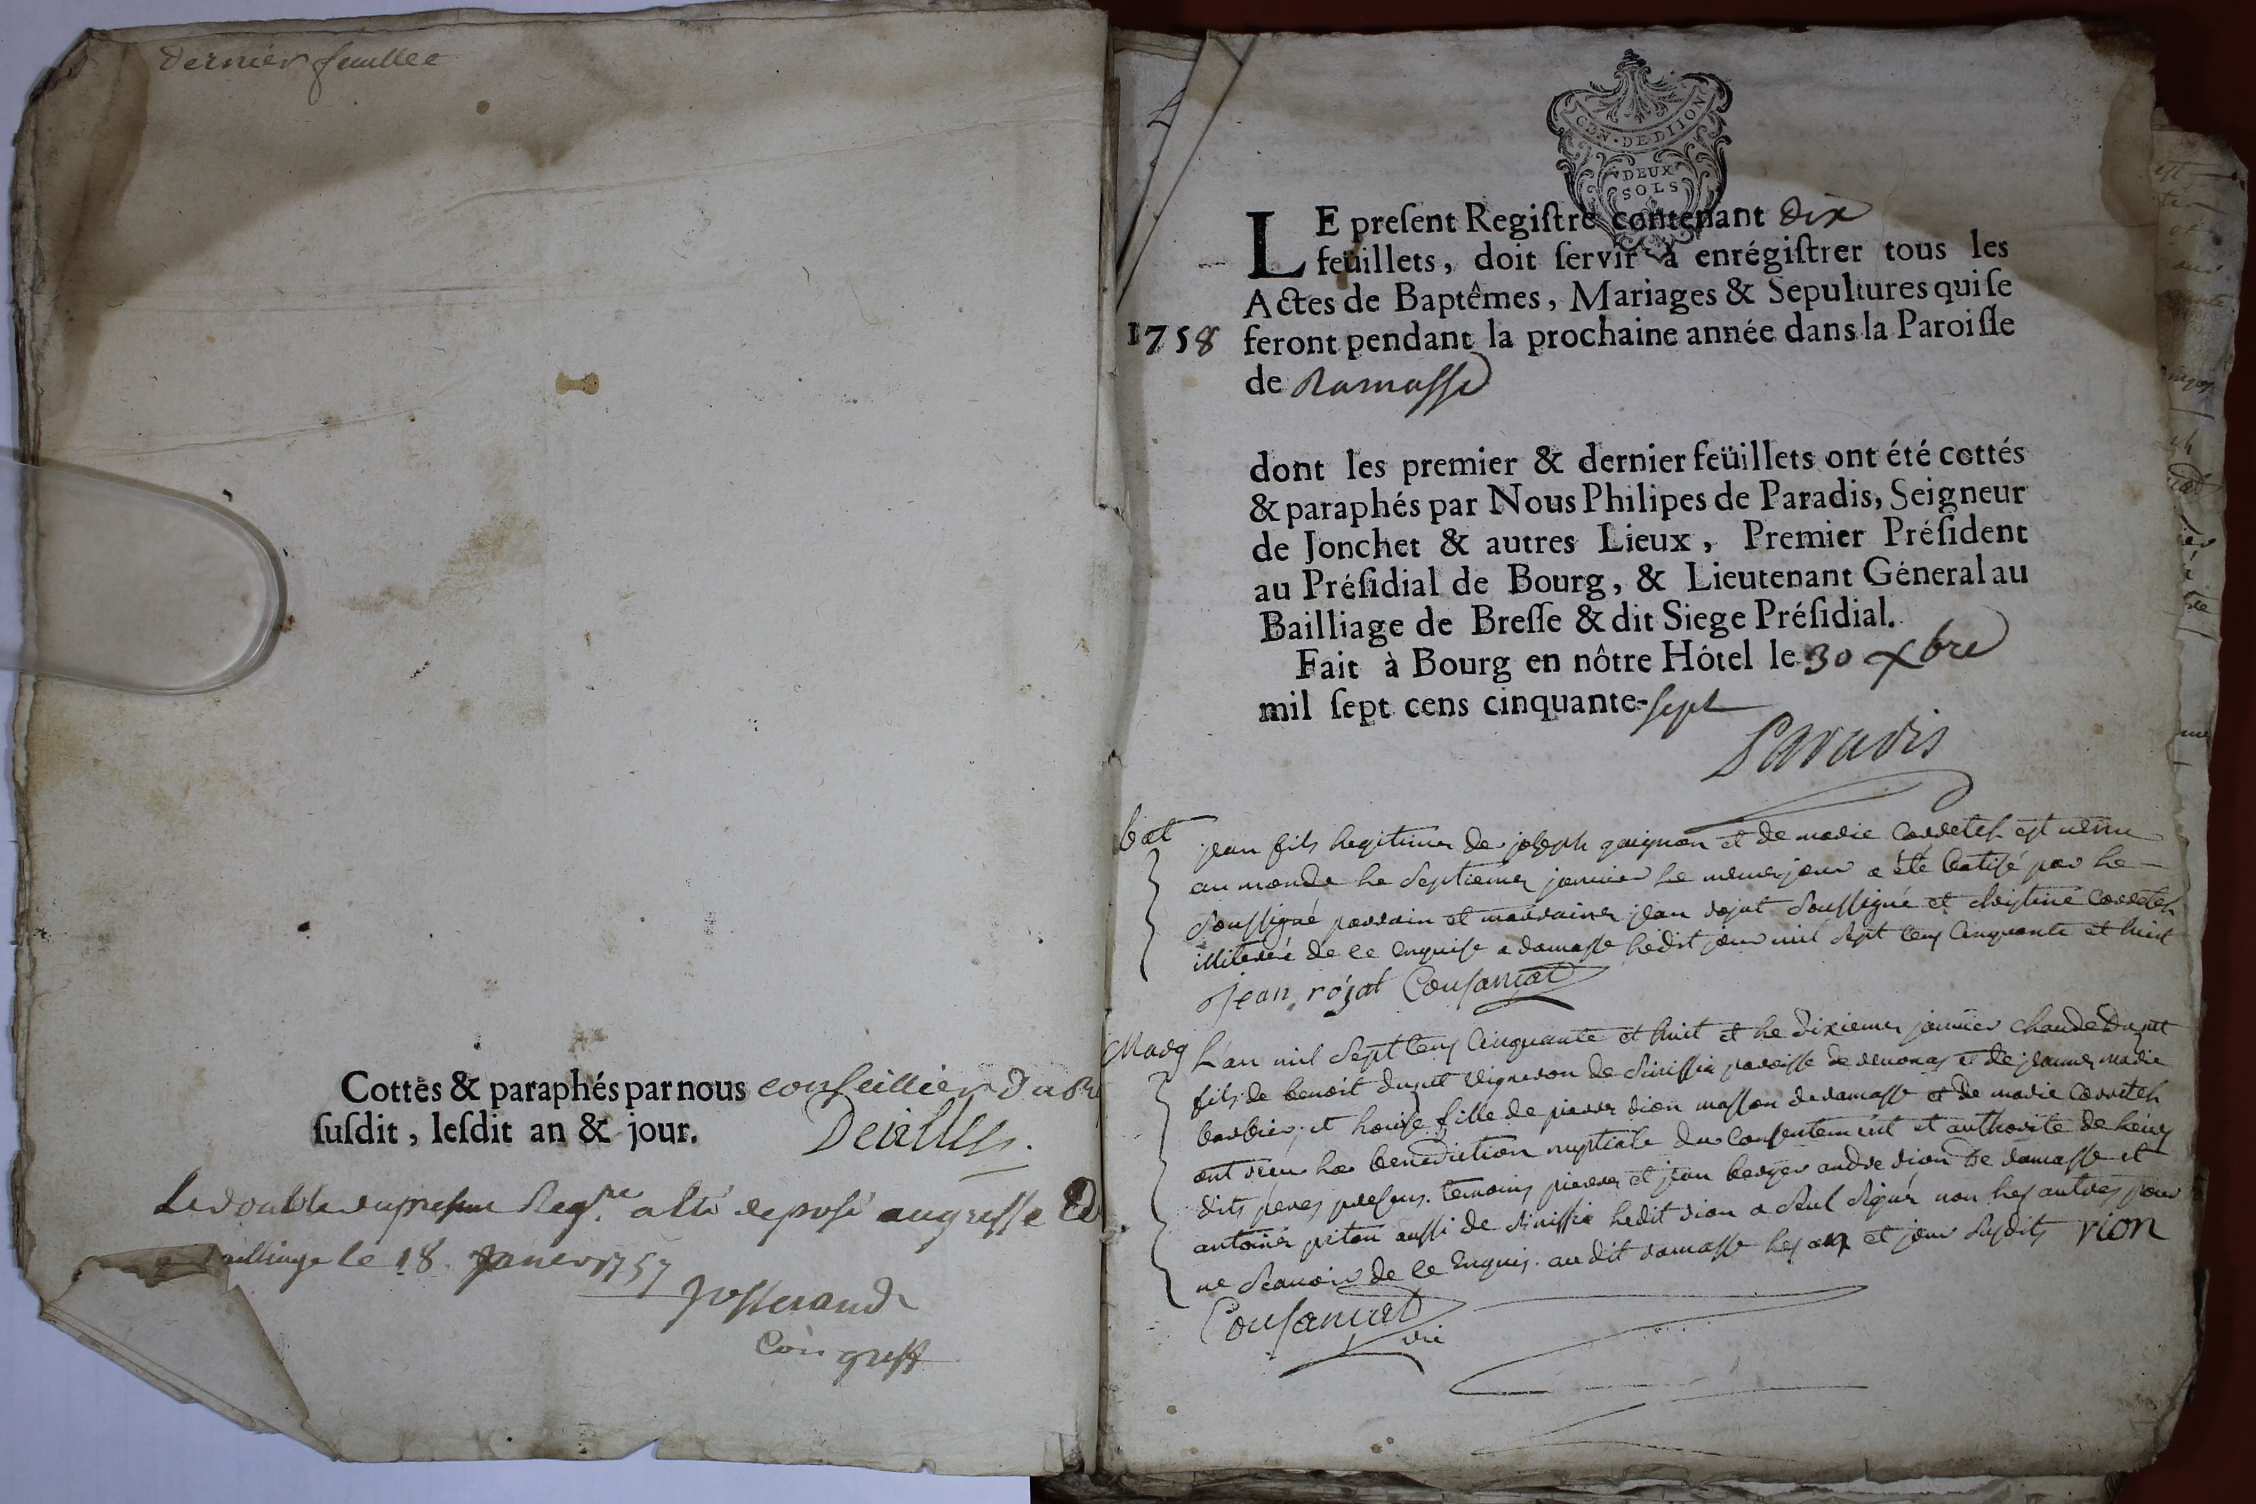 dernier feuillet
Cottés & paraphés par nous conseillier
susdit, lesdit an & jour.
Le double du present Reg.re a été deposé au greffe
Bailliage le 18 Janvier 1757
Josserand
GEN · DE DIJON
DEUX
SOLS
LE present Registre contenant dix
feüillets, doit servir à enrégistrer tous les
Actes de Baptêmes, Mariages & Sepultures qui se
1758 feront pendant la prochaine année dans la Paroisse
de Ramasse
dont les premier & dernier feüillets ont été cottés
& paraphés par Nous Philipes de Paradis, Seigneur
de Jonchet & autres Lieux, Premier Président
au Présidial de Bourg, & Lieutenant Géneral au
Bailliage de Bresse & dit Siege Présidial.
Fait à Bourg en nôtre Hôtel le 30 xbre
mil sept cens cinquante-sept
Paradis
bat jean fils legitime de joseph goignon et de marie Corretel est venu
au monde le septieme janvier le meme jour a été batisé par le
soussigné parrain et marraine jean rojat soussigné et christine Corretel
illiterée de ce enquise a ramasse ledit jour mil sept cens cinquante et huit
Jean rojat Cousancat
Marg L'an mil sept cens cinquante et huit et le dixieme janvier claude
fils de benoit vigneron de paroisse de et de jeanne marie
barbier, et louise fille de pierre rion masson de ramasse et de marie Corretel
ont reçu la benediction nuptiale du consentement et authorite de leurs
dits peres presens. temoins pierre et jean berger andre rion de ramasse et
antoine piton aussi de ledit rion a seul signé non les autres pour
ne scavoir de ce enquis. audit ramasse les an et jour susdits rion
Cousancat